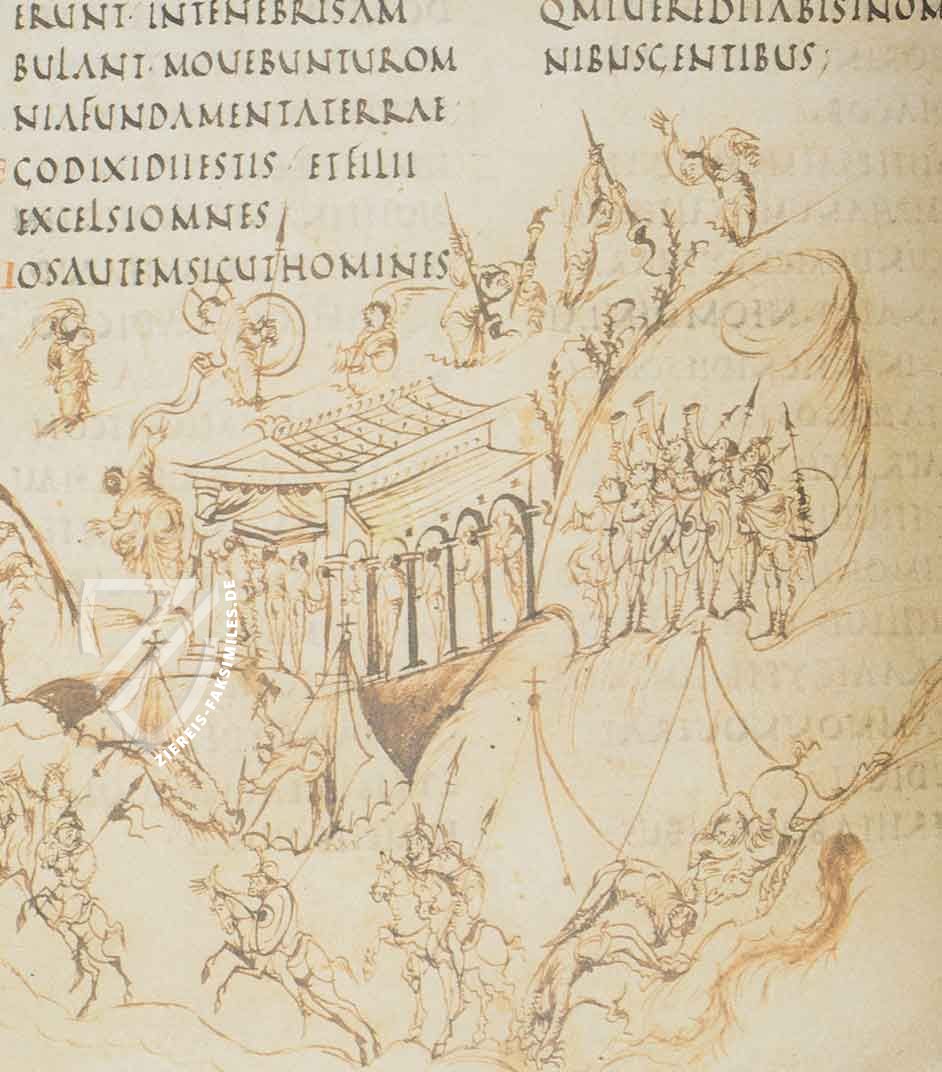 ERUNT· INTENEBRISAM
BULANT· MOUEBUNTUROM
NIAFUNDAMENTATERRAE
CODIXIDIIESTIS· ETFILII
EXCELSIOMNES
UOSAUTEMSICUTHOMINES
QMTUEREDITABISINOM
NIBUSGENTIBUS;
ZIEREIS-FAKSIMILES.DE